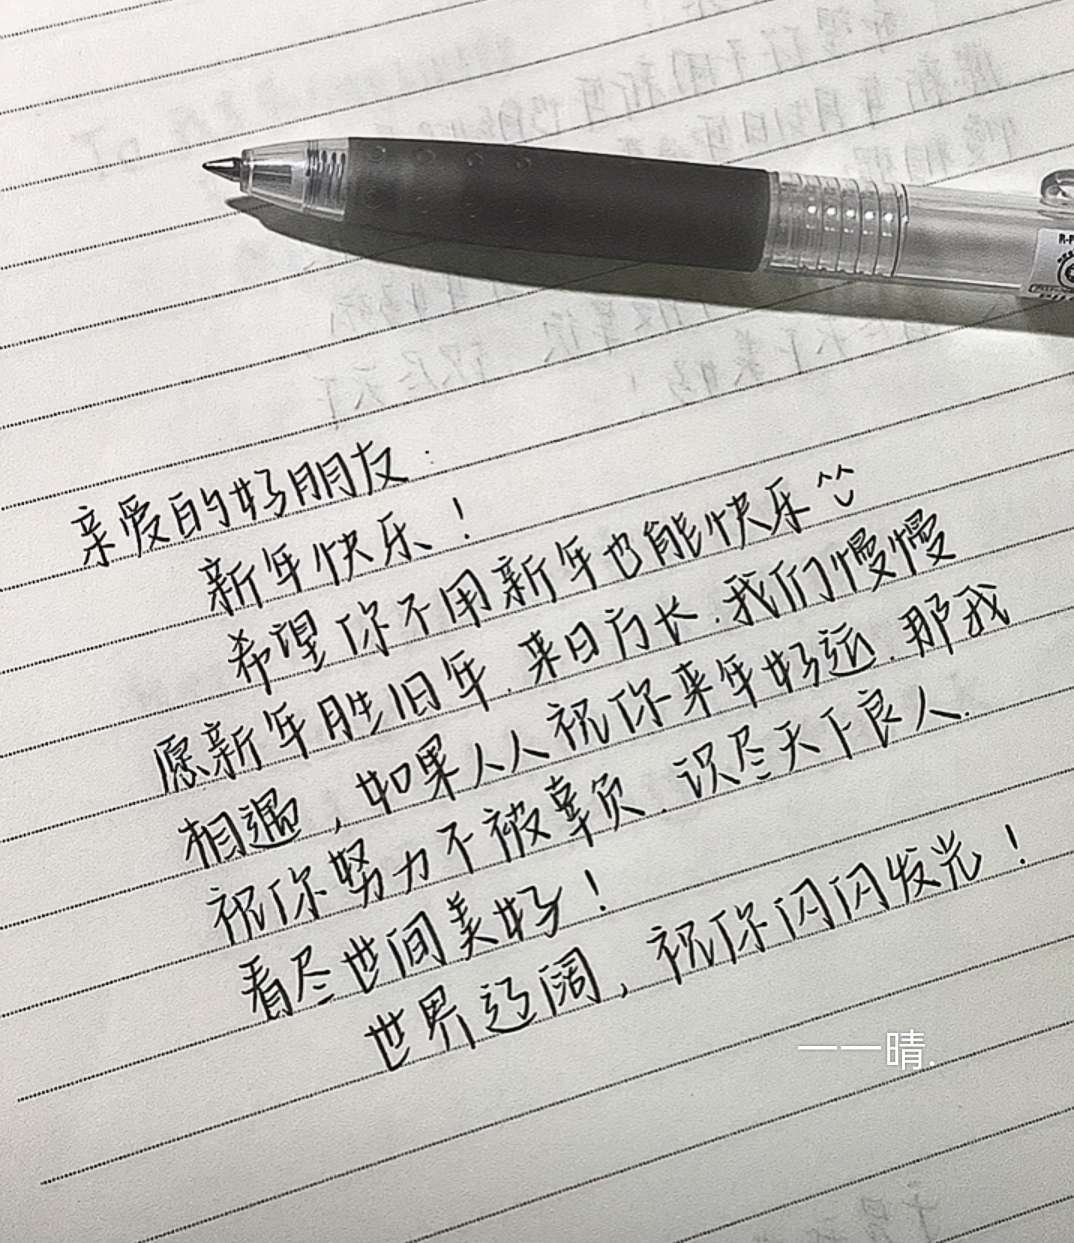 亲爱的好朋友:
新年快乐!
希望你不用新年也能快乐
愿新年胜旧年.来日方长.我们慢慢
相遇,如果人人祝你来年好运.那我
祝你努力不被辜负.识尽天下良人.
看尽世间美好!
世界辽阔,祝你闪闪发光!
一一晴.